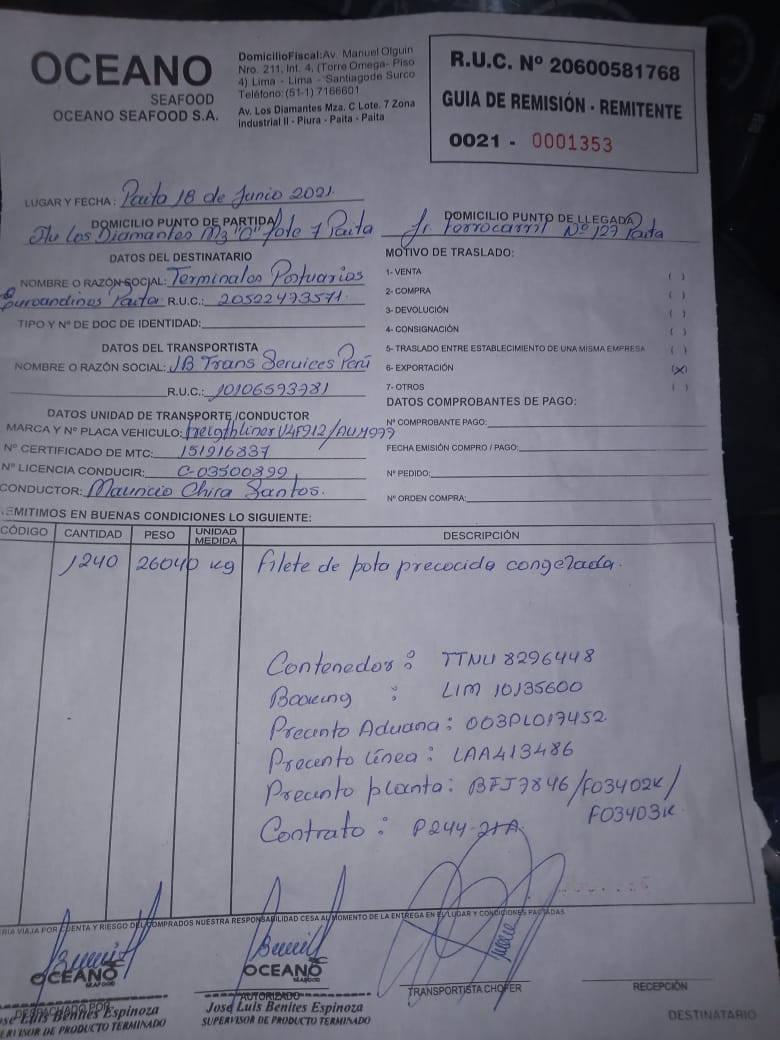 OCEANO
SEAFOOD
OCEANO SEAFOOD S.A.
Domicilio Fiscal: Av. Manuel Olguin
Nro. 211, Int. 4, (Torre Omega- Piso
4) Lima - Lima - Santiagode Surco
Teléfono: (51-1) 7166601
Av. Los Diamantes Mza. C Lote. 7 Zona
industrial II - Piura - Paita - Paita
R.U.C. Nº 20600581768
GUIA DE REMISIÓN - REMITENTE
0021 - 0001353
LUGAR Y FECHA: Paita 18 de Junio 2021.
DOMICILIO PUNTO DE PARTIDA
Av Los Diamantes Mz "C" lote 7 Paita
DOMICILIO PUNTO DE LLEGADA
Jr Ferrocarril Nº 127 Paita
DATOS DEL DESTINATARIO
NOMBRE O RAZÓN SOCIAL: Terminales Portuarios
Euroandinos Paita R.U.C.: 20522473571.
TIPO Y Nº DE DOC DE IDENTIDAD:
DATOS DEL TRANSPORTISTA
NOMBRE O RAZÓN SOCIAL: JB Trans Services Perú
R.U.C.: 10106593781
DATOS UNIDAD DE TRANSPORTE /CONDUCTOR
MARCA Y Nº PLACA VEHICULO: V4F912/AUM977
Nº CERTIFICADO DE MTC: 151916837
Nº LICENCIA CONDUCIR: C-03500899
CONDUCTOR: Mauricio Chira Santos.
MOTIVO DE TRASLADO:
1- VENTA ( )
2- COMPRA ( )
3- DEVOLUCIÓN ( )
4- CONSIGNACIÓN ( )
5- TRASLADO ENTRE ESTABLECIMIENTO DE UNA MISMA EMPRESA ( )
6- EXPORTACIÓN (X)
7- OTROS ( )
DATOS COMPROBANTES DE PAGO:
Nº COMPROBANTE PAGO:
FECHA EMISIÓN COMPRO / PAGO:
Nº PEDIDO:
Nº ORDEN COMPRA:
EMITIMOS EN BUENAS CONDICIONES LO SIGUIENTE:
CÓDIGO CANTIDAD PESO UNIDAD MEDIDA DESCRIPCIÓN
1240 26040 kg Filete de pota precocida congelada.
Contenedor: TTNU 8296448
Booking: LIM 10135600
Precinto Aduana: 003PL017452
Precinto línea: LAA413486
Precinto planta: BFJ7846/F03402K/
F03403K
Contrato: P244-21A
VIAJA POR CUENTA Y RIESGO DEL COMPRADOS NUESTRA RESPONSABILIDAD CESA AL MOMENTO DE LA ENTREGA EN EL LUGAR Y CONDICIONES PACTADAS
OCEANO
SEAFOOD
OCEANO
SEAFOOD
DESPACHADO POR
AUTORIZADO
TRANSPORTISTA CHOFER
RECEPCIÓN
José Luis Benites Espinoza
SUPERVISOR DE PRODUCTO TERMINADO
José Luis Benites Espinoza
SUPERVISOR DE PRODUCTO TERMINADO
DESTINATARIO